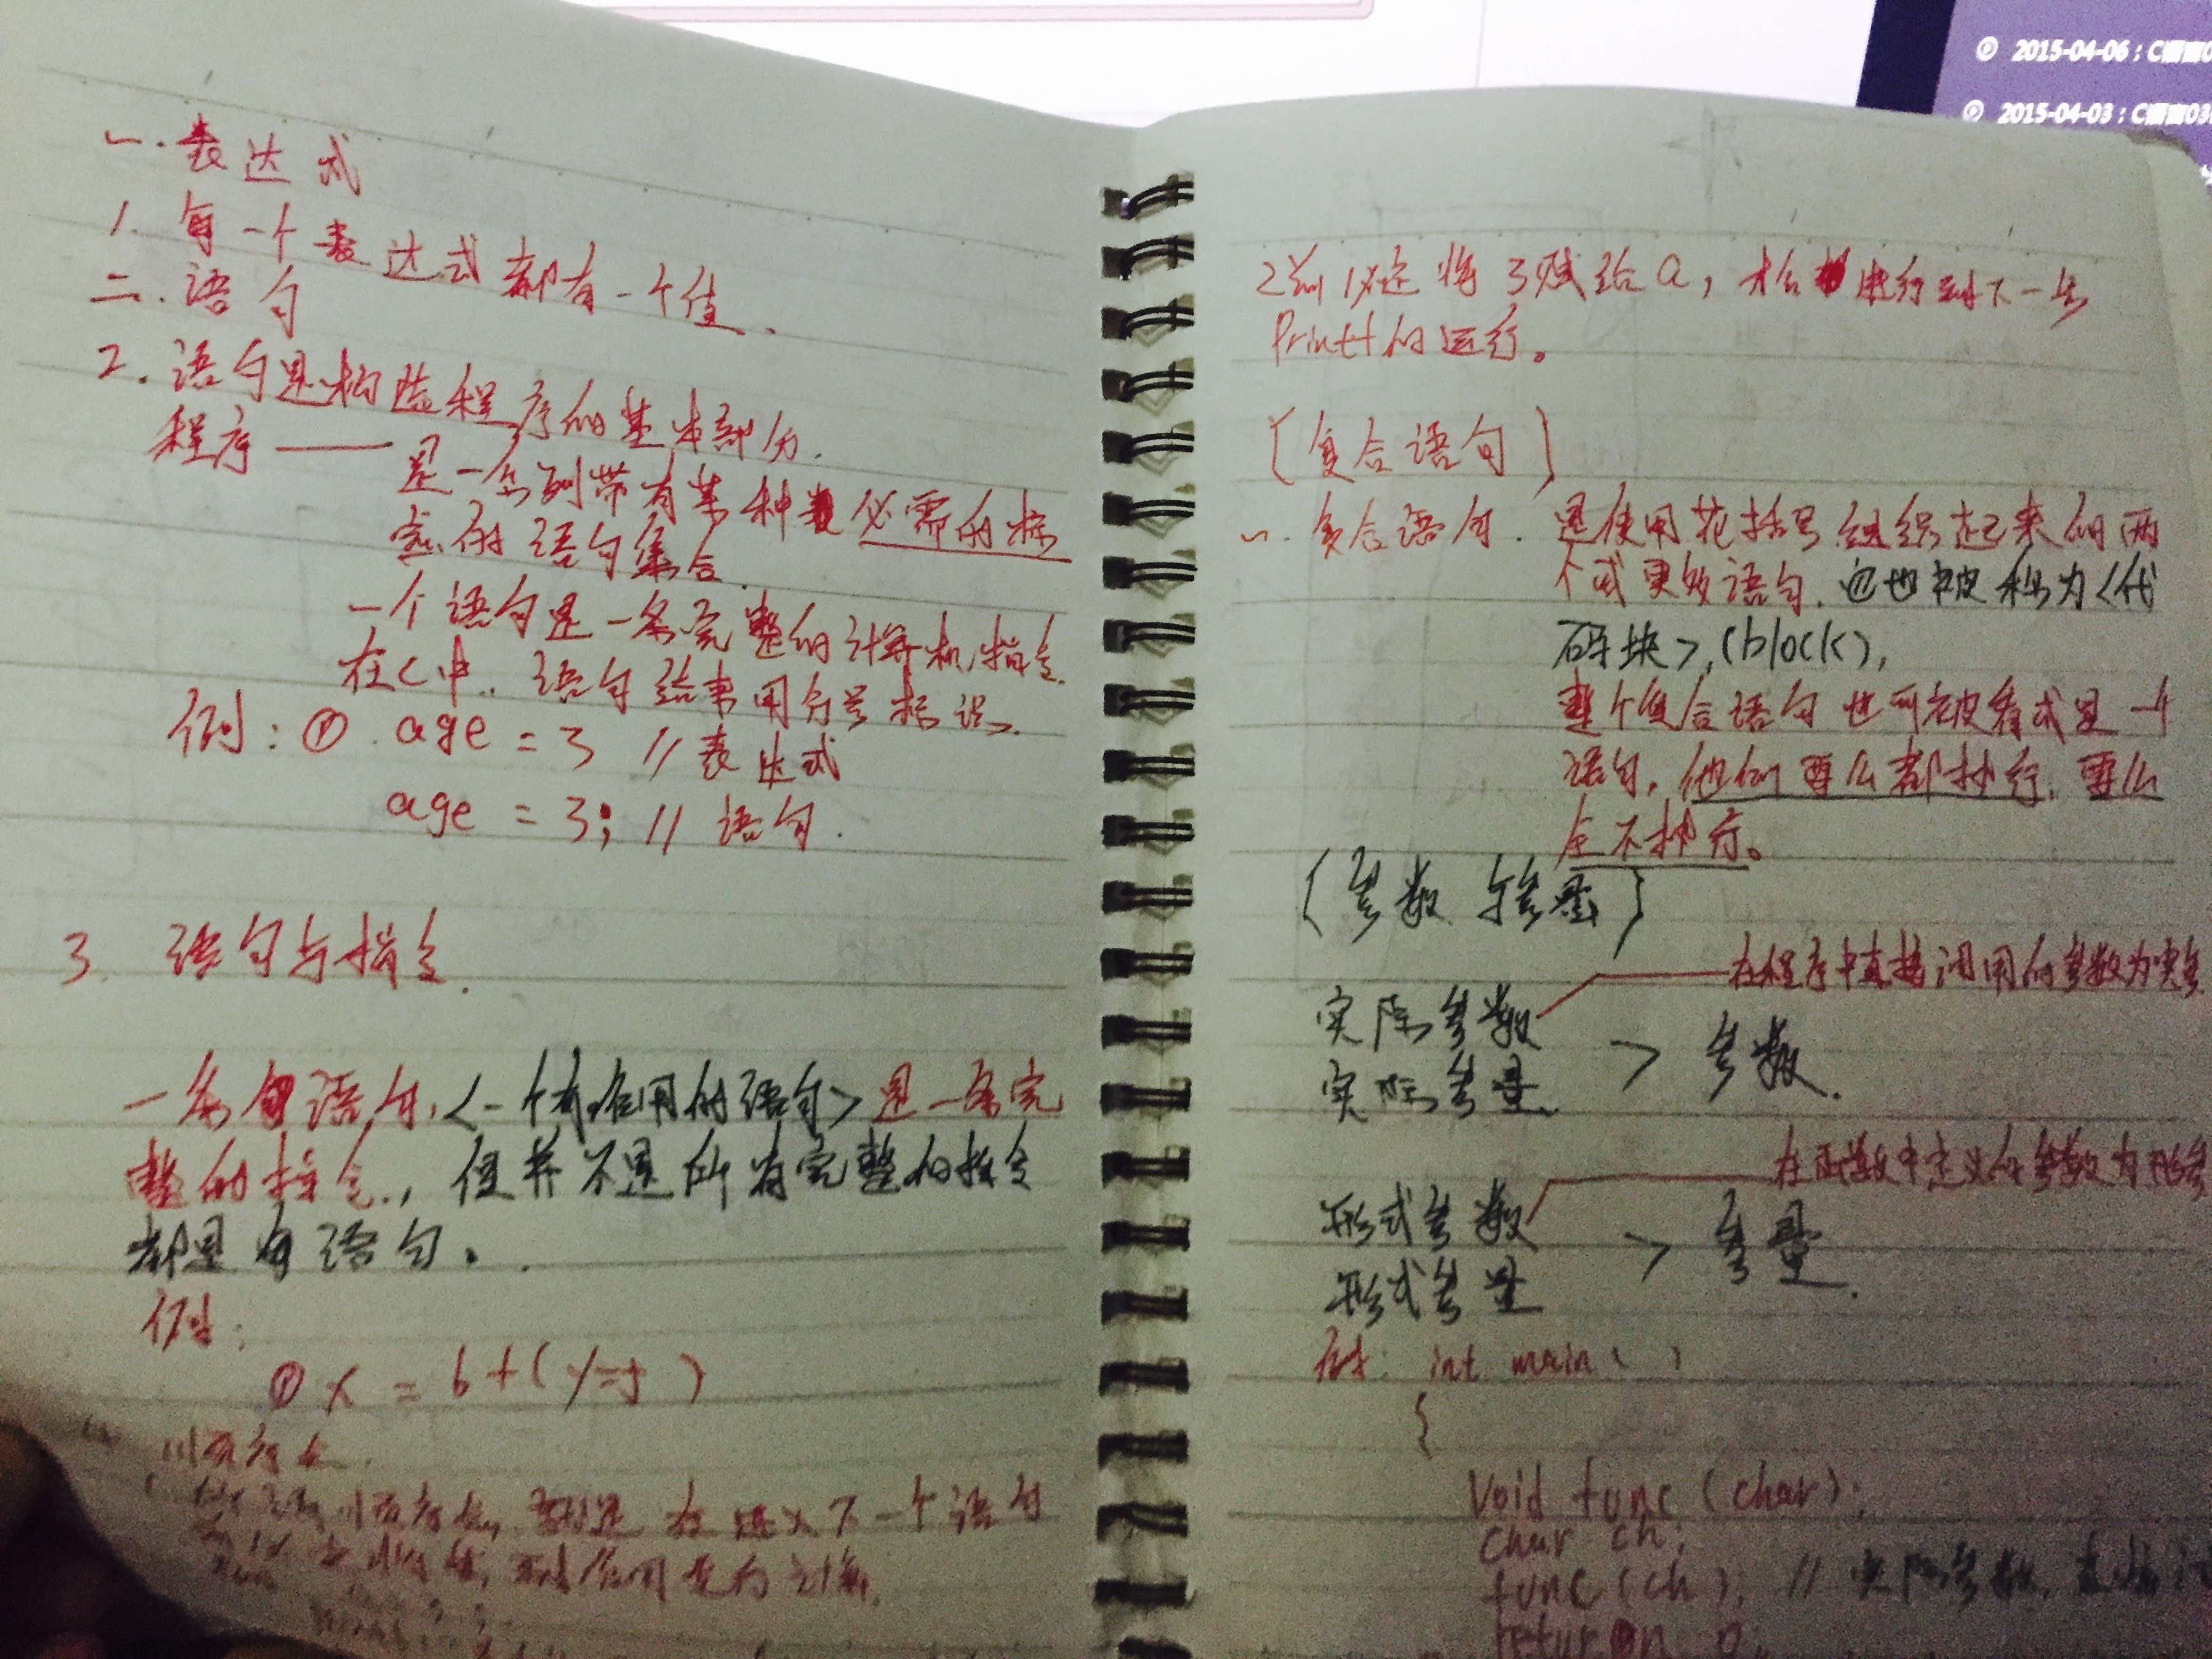 一.表达式
1. 每一个表达式都有一个值.
二.语句
2. 语句是构造程序的基本部分.
程序——是一系列带有某种必需的标
点的语句集合
一个语句是一条完整的计算机指令.
在C中.语句结束用分号标识.
例:① age = 3 //表达式
age = 3; // 语句.
3. 语句与指令.
一条语句,<一个有作用的语句>是一条完
整的指令., 但并不是所有完整的指令
都是句语句。.
例:
① x = 6 + (y=5)
顺序点.
顺序点, 在进入下一个语句
2015-04-06:C语言0
2015-04-03:C语言03
2前必定将3赋给a,才会进行到下一步
Printf的运行。
[复合语句]
一.复合语句. 是使用花括号组织起来的两
个或更多语句.它也被称为<代
码块>,(block),
整个复合语句也可被看成是一个
语句,他们要么都执行,要么
全不执行。
{参数与参量}
在程序中直接调用的参数为实参
实际参数
实际参量. > 参数.
在函数中定义的参数为形参
形式参数
形式参量 > 参量.
例: int main()
{
void func (char);
char ch;
func (ch); // 实际参数,
return 0;